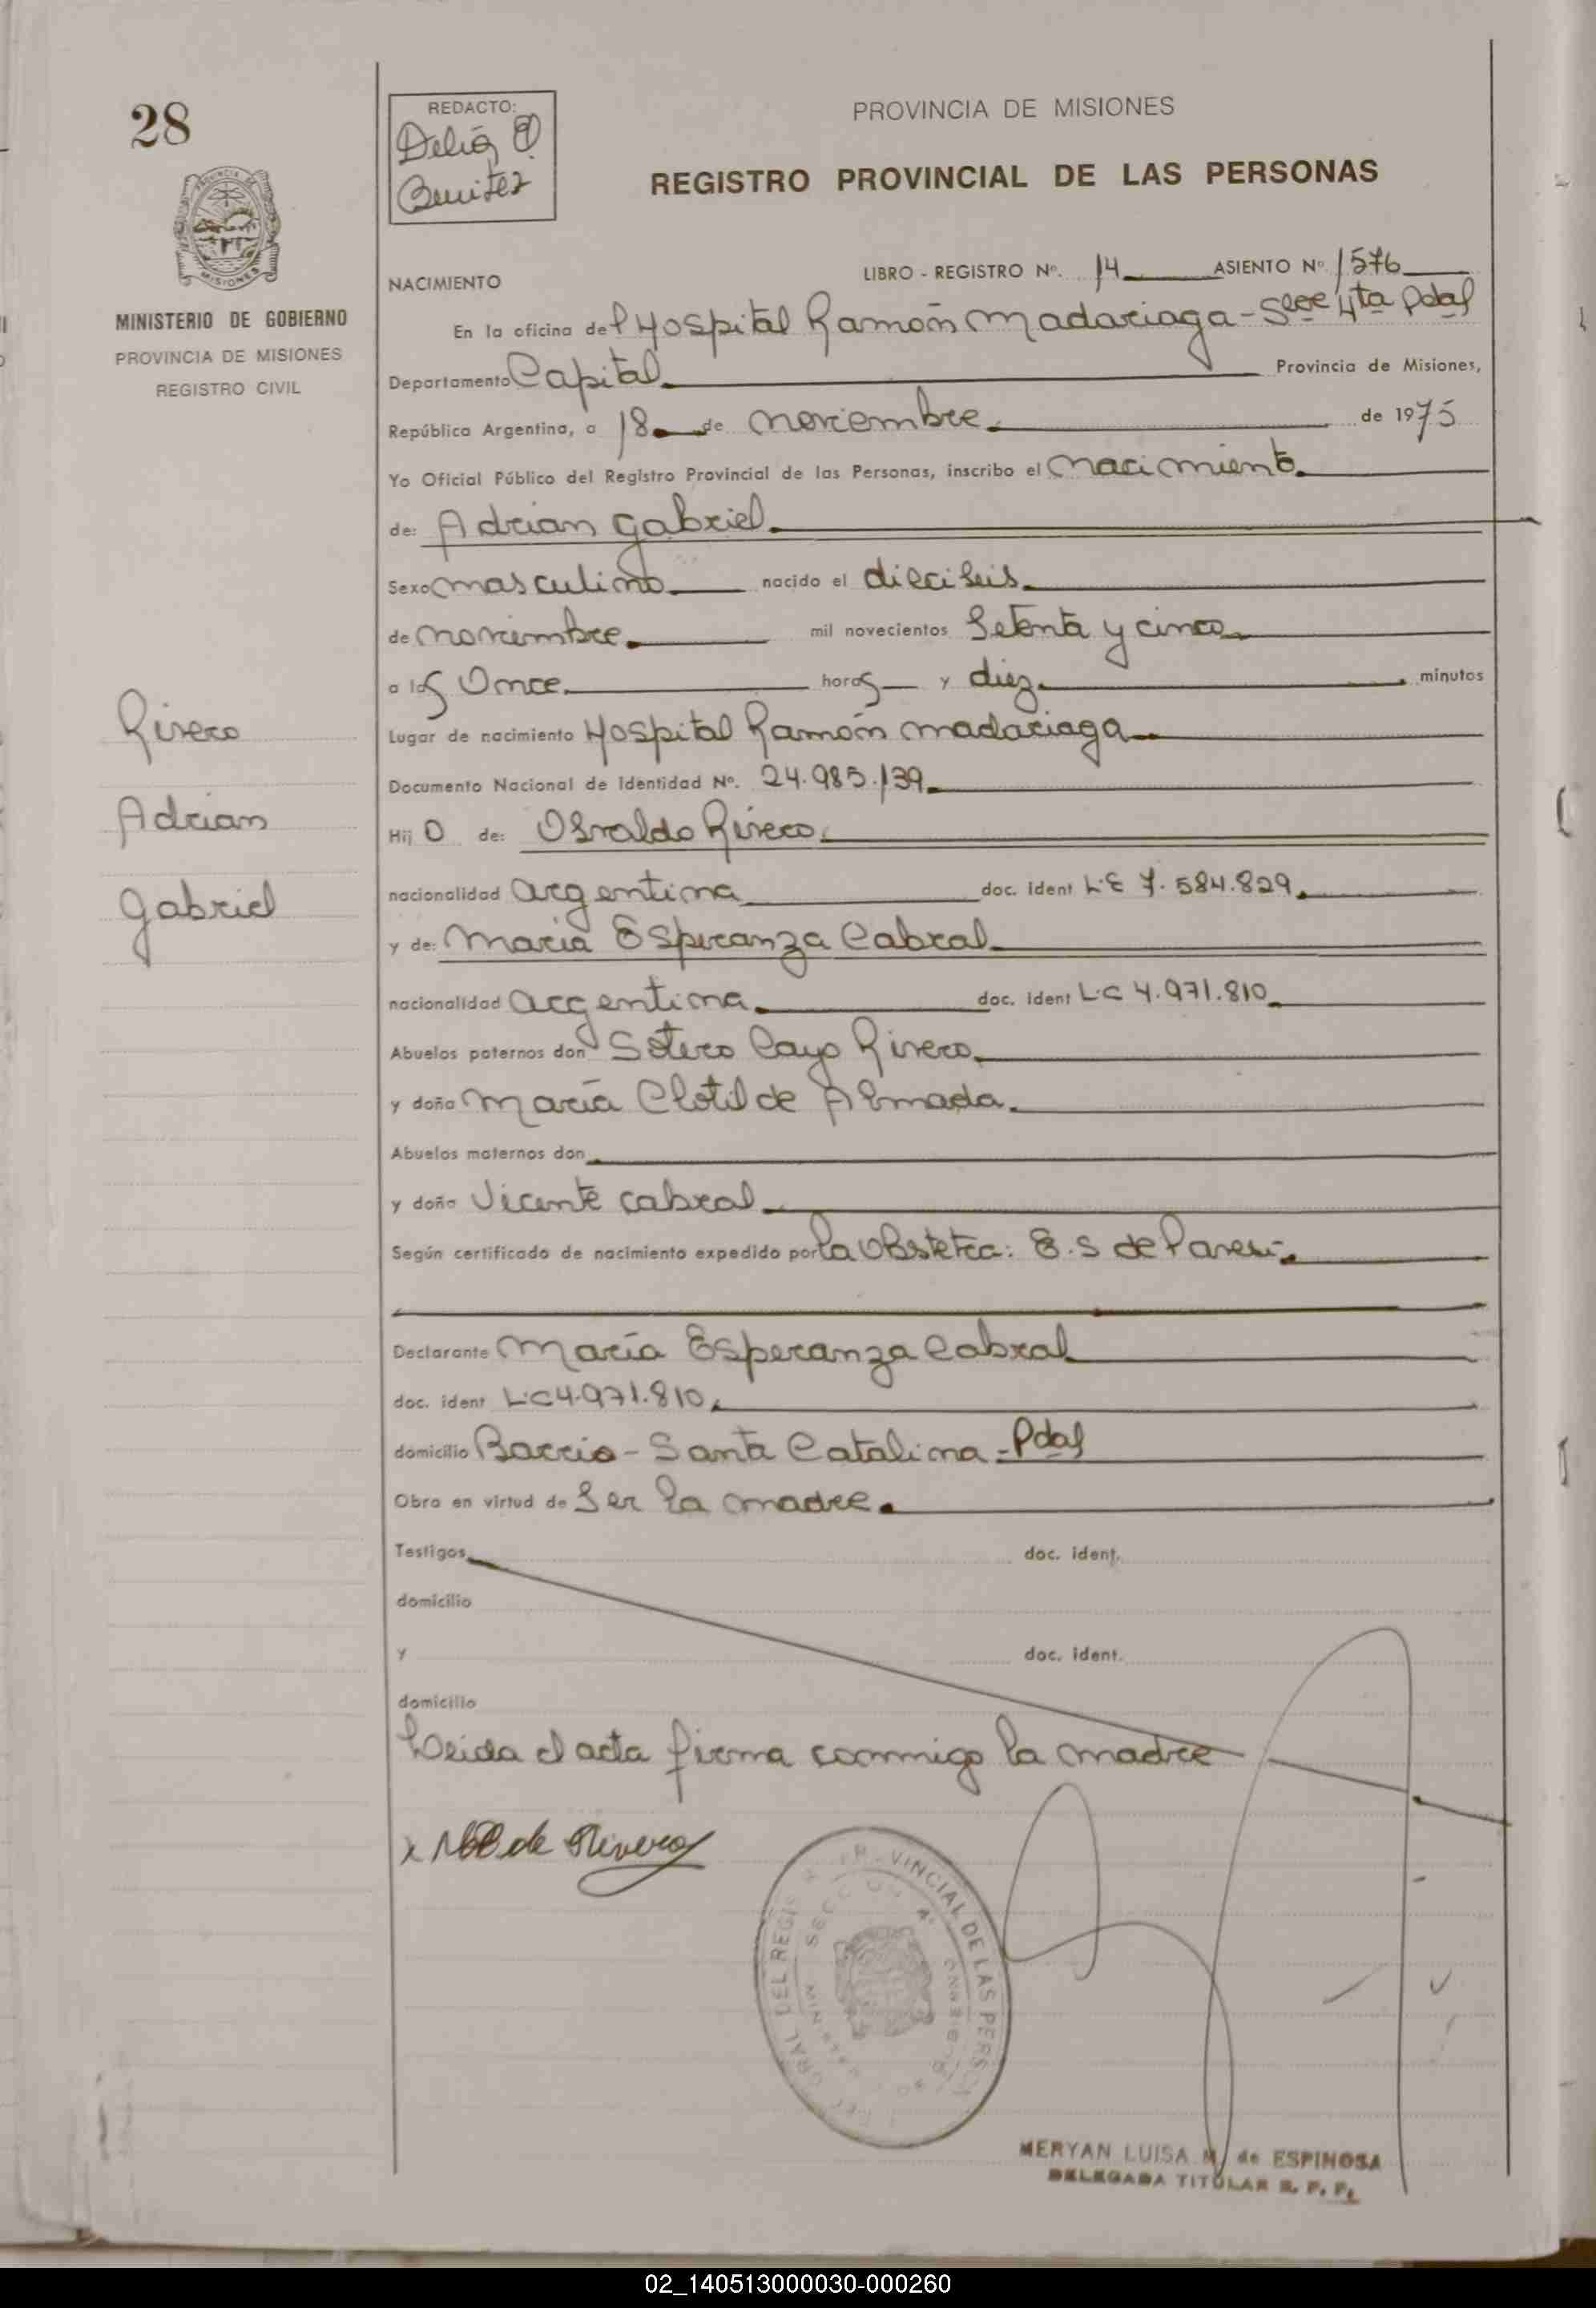 28
REDACTO:
Delia
Benitez
PROVINCIA DE MISIONES
REGISTRO PROVINCIAL DE LAS PERSONAS
MINISTERIO DE GOBIERNO
PROVINCIA DE MISIONES
REGISTRO CIVIL
NACIMIENTO
LIBRO - REGISTRO Nº. 14 ASIENTO Nº 1576
En la oficina del Hospital Ramón Madariaga - Secc 4ta Pdas
Departamento Capital Provincia de Misiones,
República Argentina, a 18 de noviembre de 1975
Yo Oficial Público del Registro Provincial de las Personas, inscribo el nacimiento
de: Adrian Gabriel
Sexo masculino nacido el dieciseis
de noviembre mil novecientos setenta y cinco
a las Once horas y diez minutos
Lugar de nacimiento Hospital Ramón Madariaga
Documento Nacional de Identidad Nº. 24.985.139
Hij o de: Osvaldo Rivero
nacionalidad argentina doc. ident L.E 7.584.829
y de: María Esperanza Cabral
nacionalidad argentina doc. ident L.C 4.971.810
Abuelos paternos don Sotero Cayo Rivero
y doña María Clotilde Almada
Abuelos maternos don
y doña Vicente Cabral
Según certificado de nacimiento expedido por la Obstetra: E.S de
Declarante María Esperanza Cabral
doc. ident L.C 4.971.810
domicilio Barrio - Santa Catalina - Pdas
Obra en virtud de ser la madre
Testigos doc. ident.
domicilio
y doc. ident.
domicilio
Leida el acta firma conmigo la madre
Rivero
Adrian
Gabriel
x de Rivero
DEL REGIS VINCIAL DE LAS PERS
MERYAN LUISA M. de ESPINOSA
DELEGADA TITULAR R. P. P.
02_140513000030-000260